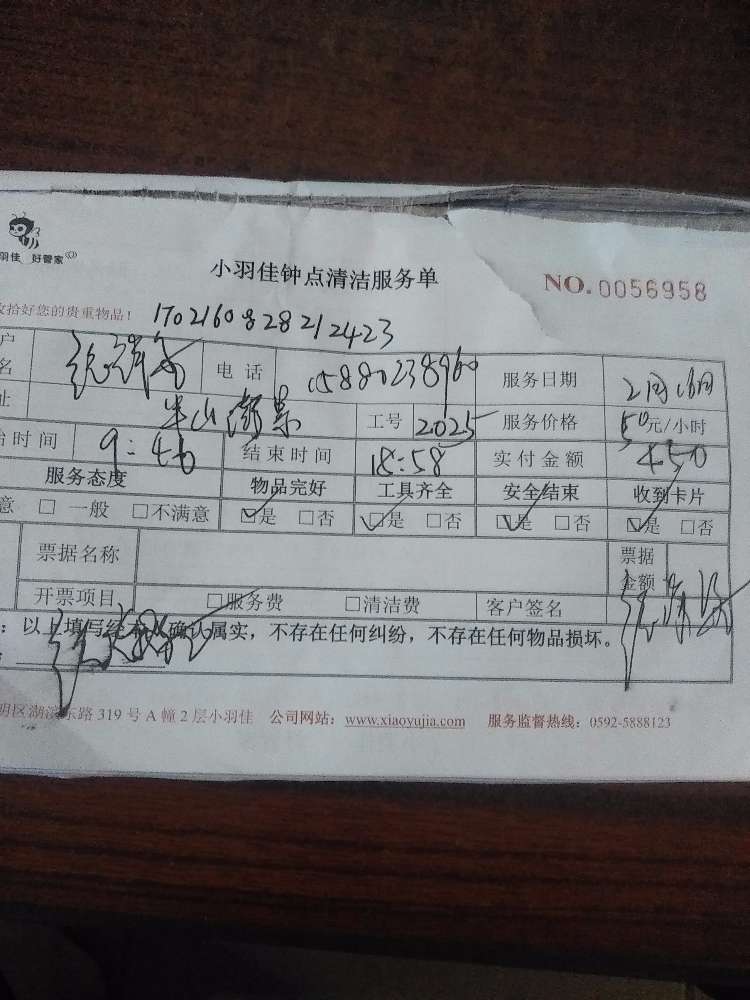 羽佳 好管家
小羽佳钟点清洁服务单 NO.0056958
收拾好您的贵重物品! 1702160828212423
户名 电话 15880238960 服务日期 2月16日
址 半山御景 工号 2025 服务价格 50元/小时
始时间 9:46 结束时间 18:58 实付金额 450
服务态度 物品完好 工具齐全 安全结束 收到卡片
意 □一般 □不满意 ☑是 □否 ☑是 □否 ☑是 □否 ☑是 □否
票据名称 票据金额
开票项目 □服务费 □清洁费 客户签名
:以上填写经本人确认属实,不存在任何纠纷,不存在任何物品损坏。
明区湖滨东路 319 号 A 幢 2 层小羽佳 公司网站:www.xiaoyujia.com 服务监督热线:0592-5888123